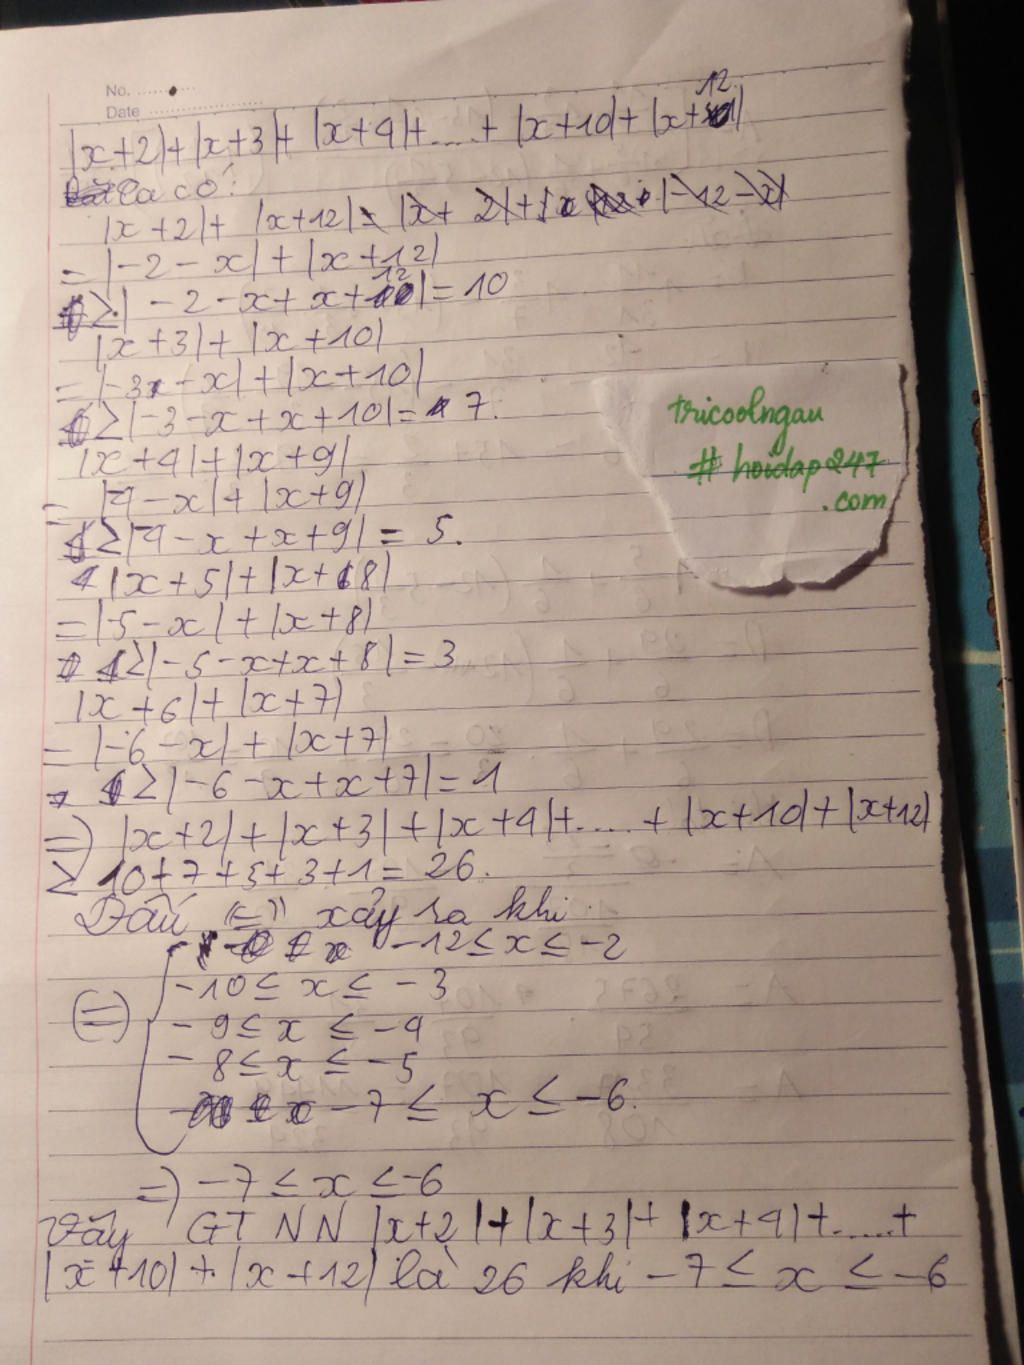 No.
Date
|x+2|+|x+3|+|x+4|+....+|x+10|+|x+12|
ta có:
|x+2|+|x+12|
=|-2-x|+|x+12|
≥|-2-x+x+12|=10
|x+3|+|x+10|
=|-3-x|+|x+10|
≥|-3-x+x+10|=7.
|x+4|+|x+9|
=|-4-x|+|x+9|
≥|-4-x+x+9|=5.
|x+5|+|x+8|
=|-5-x|+|x+8|
≥|-5-x+x+8|=3
|x+6|+|x+7|
=|-6-x|+|x+7|
≥|-6-x+x+7|=1
=>|x+2|+|x+3|+|x+4|+....+|x+10|+|x+12|
≥10+7+5+3+1=26.
Dấu "=" xảy ra khi
-12≤x≤-2
-10≤x≤-3
(=) -9≤x≤-4
-8≤x≤-5
-7≤x≤-6.
=>-7≤x≤-6
Vậy GTNN |x+2|+|x+3|+|x+4|+.....+
|x+10|+|x+12| là 26 khi -7≤x≤-6
tricoolngau
# hoidap247
.com